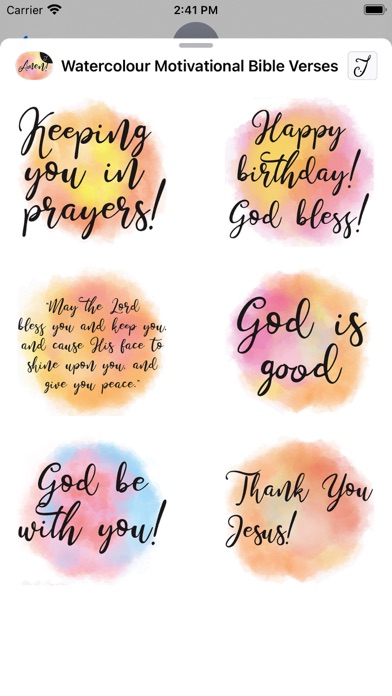 Carrier 2:41 PM
Amen! Watercolour Motivational Bible Verses J
Keeping
you in
prayers!
Happy
birthday!
God bless!
"May the Lord
bless you and keep you,
and cause His face to
shine upon you, and
give you peace."
God is
good
God be
with you!
Thank You
Jesus!